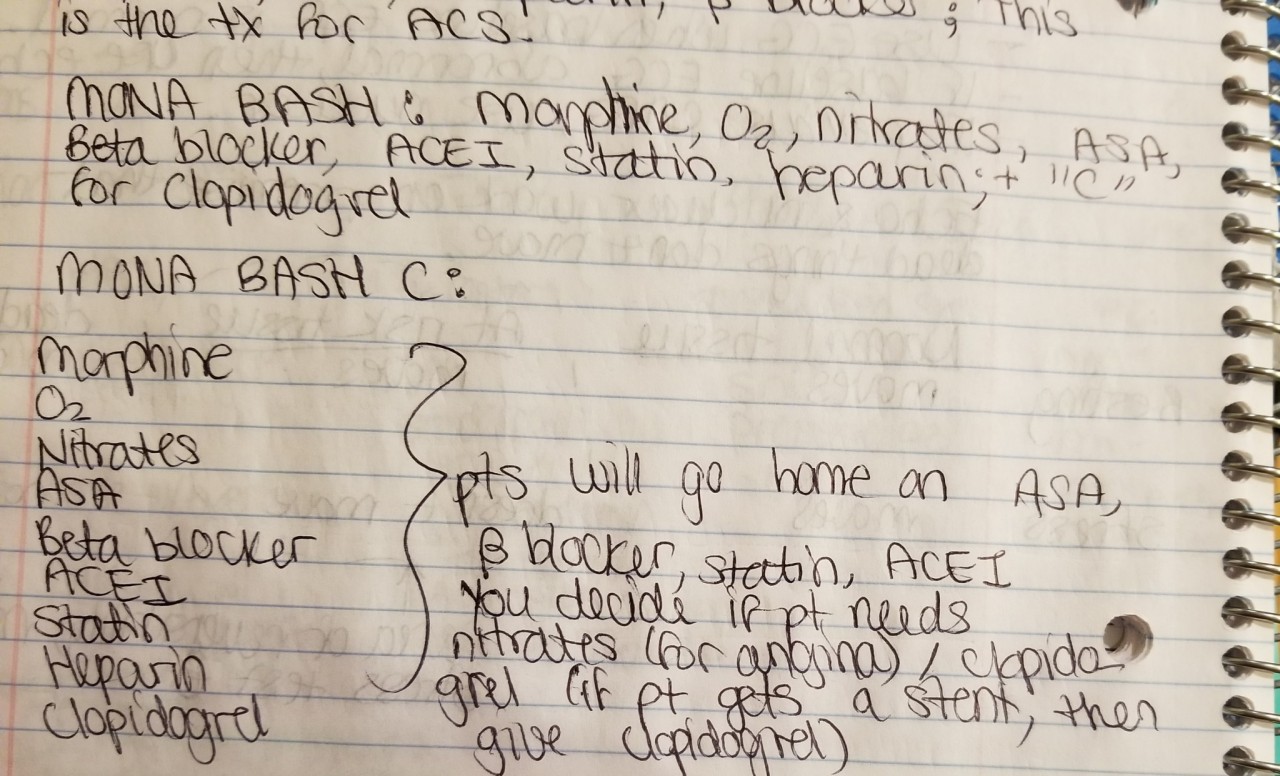 β blocker; This
is the tx for ACS!
MONA BASH: Morphine, O2, nitrates, ASA,
Beta blocker, ACEI, statin, heparin; + "C"
for Clopidogrel
MONA BASH C:
Morphine
O2
Nitrates
ASA
Beta blocker
ACEI
Statin
Heparin
Clopidogrel
pts will go home on ASA,
β blocker, statin, ACEI
You decide if pt needs
nitrates (for angina) / clopido-
grel (if pt gets a stent, then
give clopidogrel)